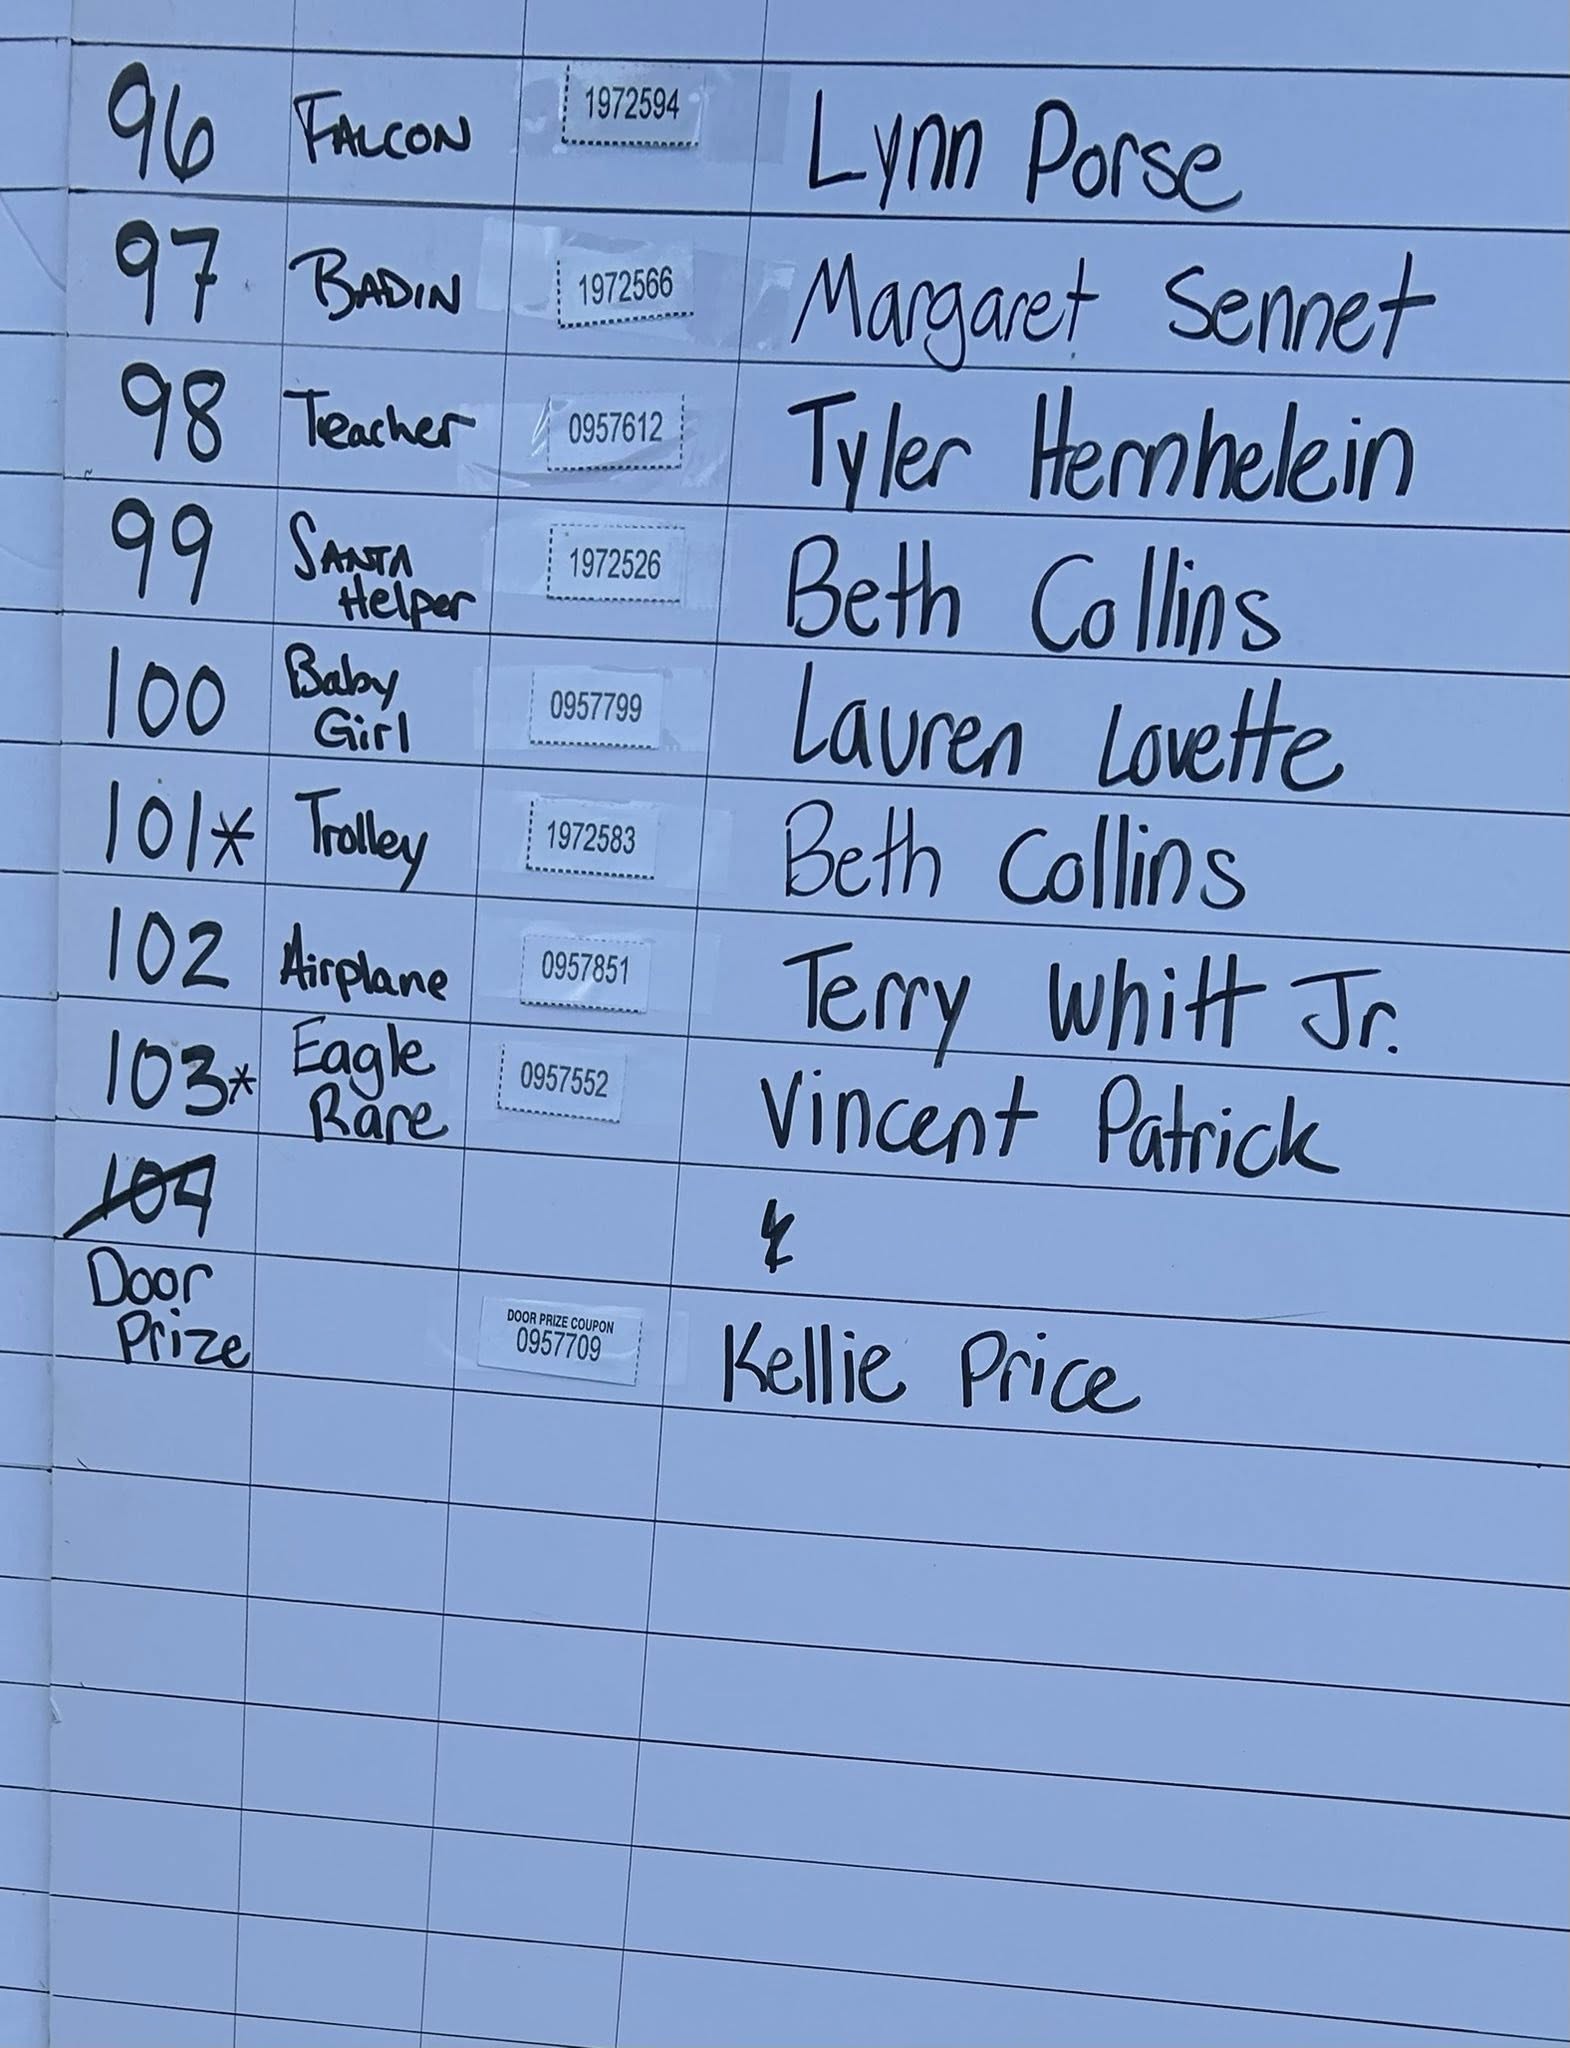 96 FALCON 1972594 Lynn Porse
97 BADIN 1972566 Margaret Sennet
98 Teacher 0957612 Tyler Hernhelein
99 SANTA Helper 1972526 Beth Collins
100 Baby Girl 0957799 Lauren Lovette
101* Trolley 1972583 Beth Collins
102 Airplane 0957851 Terry Whitt Jr.
103* Eagle Rare 0957552 Vincent Patrick
104
Door Prize DOOR PRIZE COUPON 0957709 Kellie Price